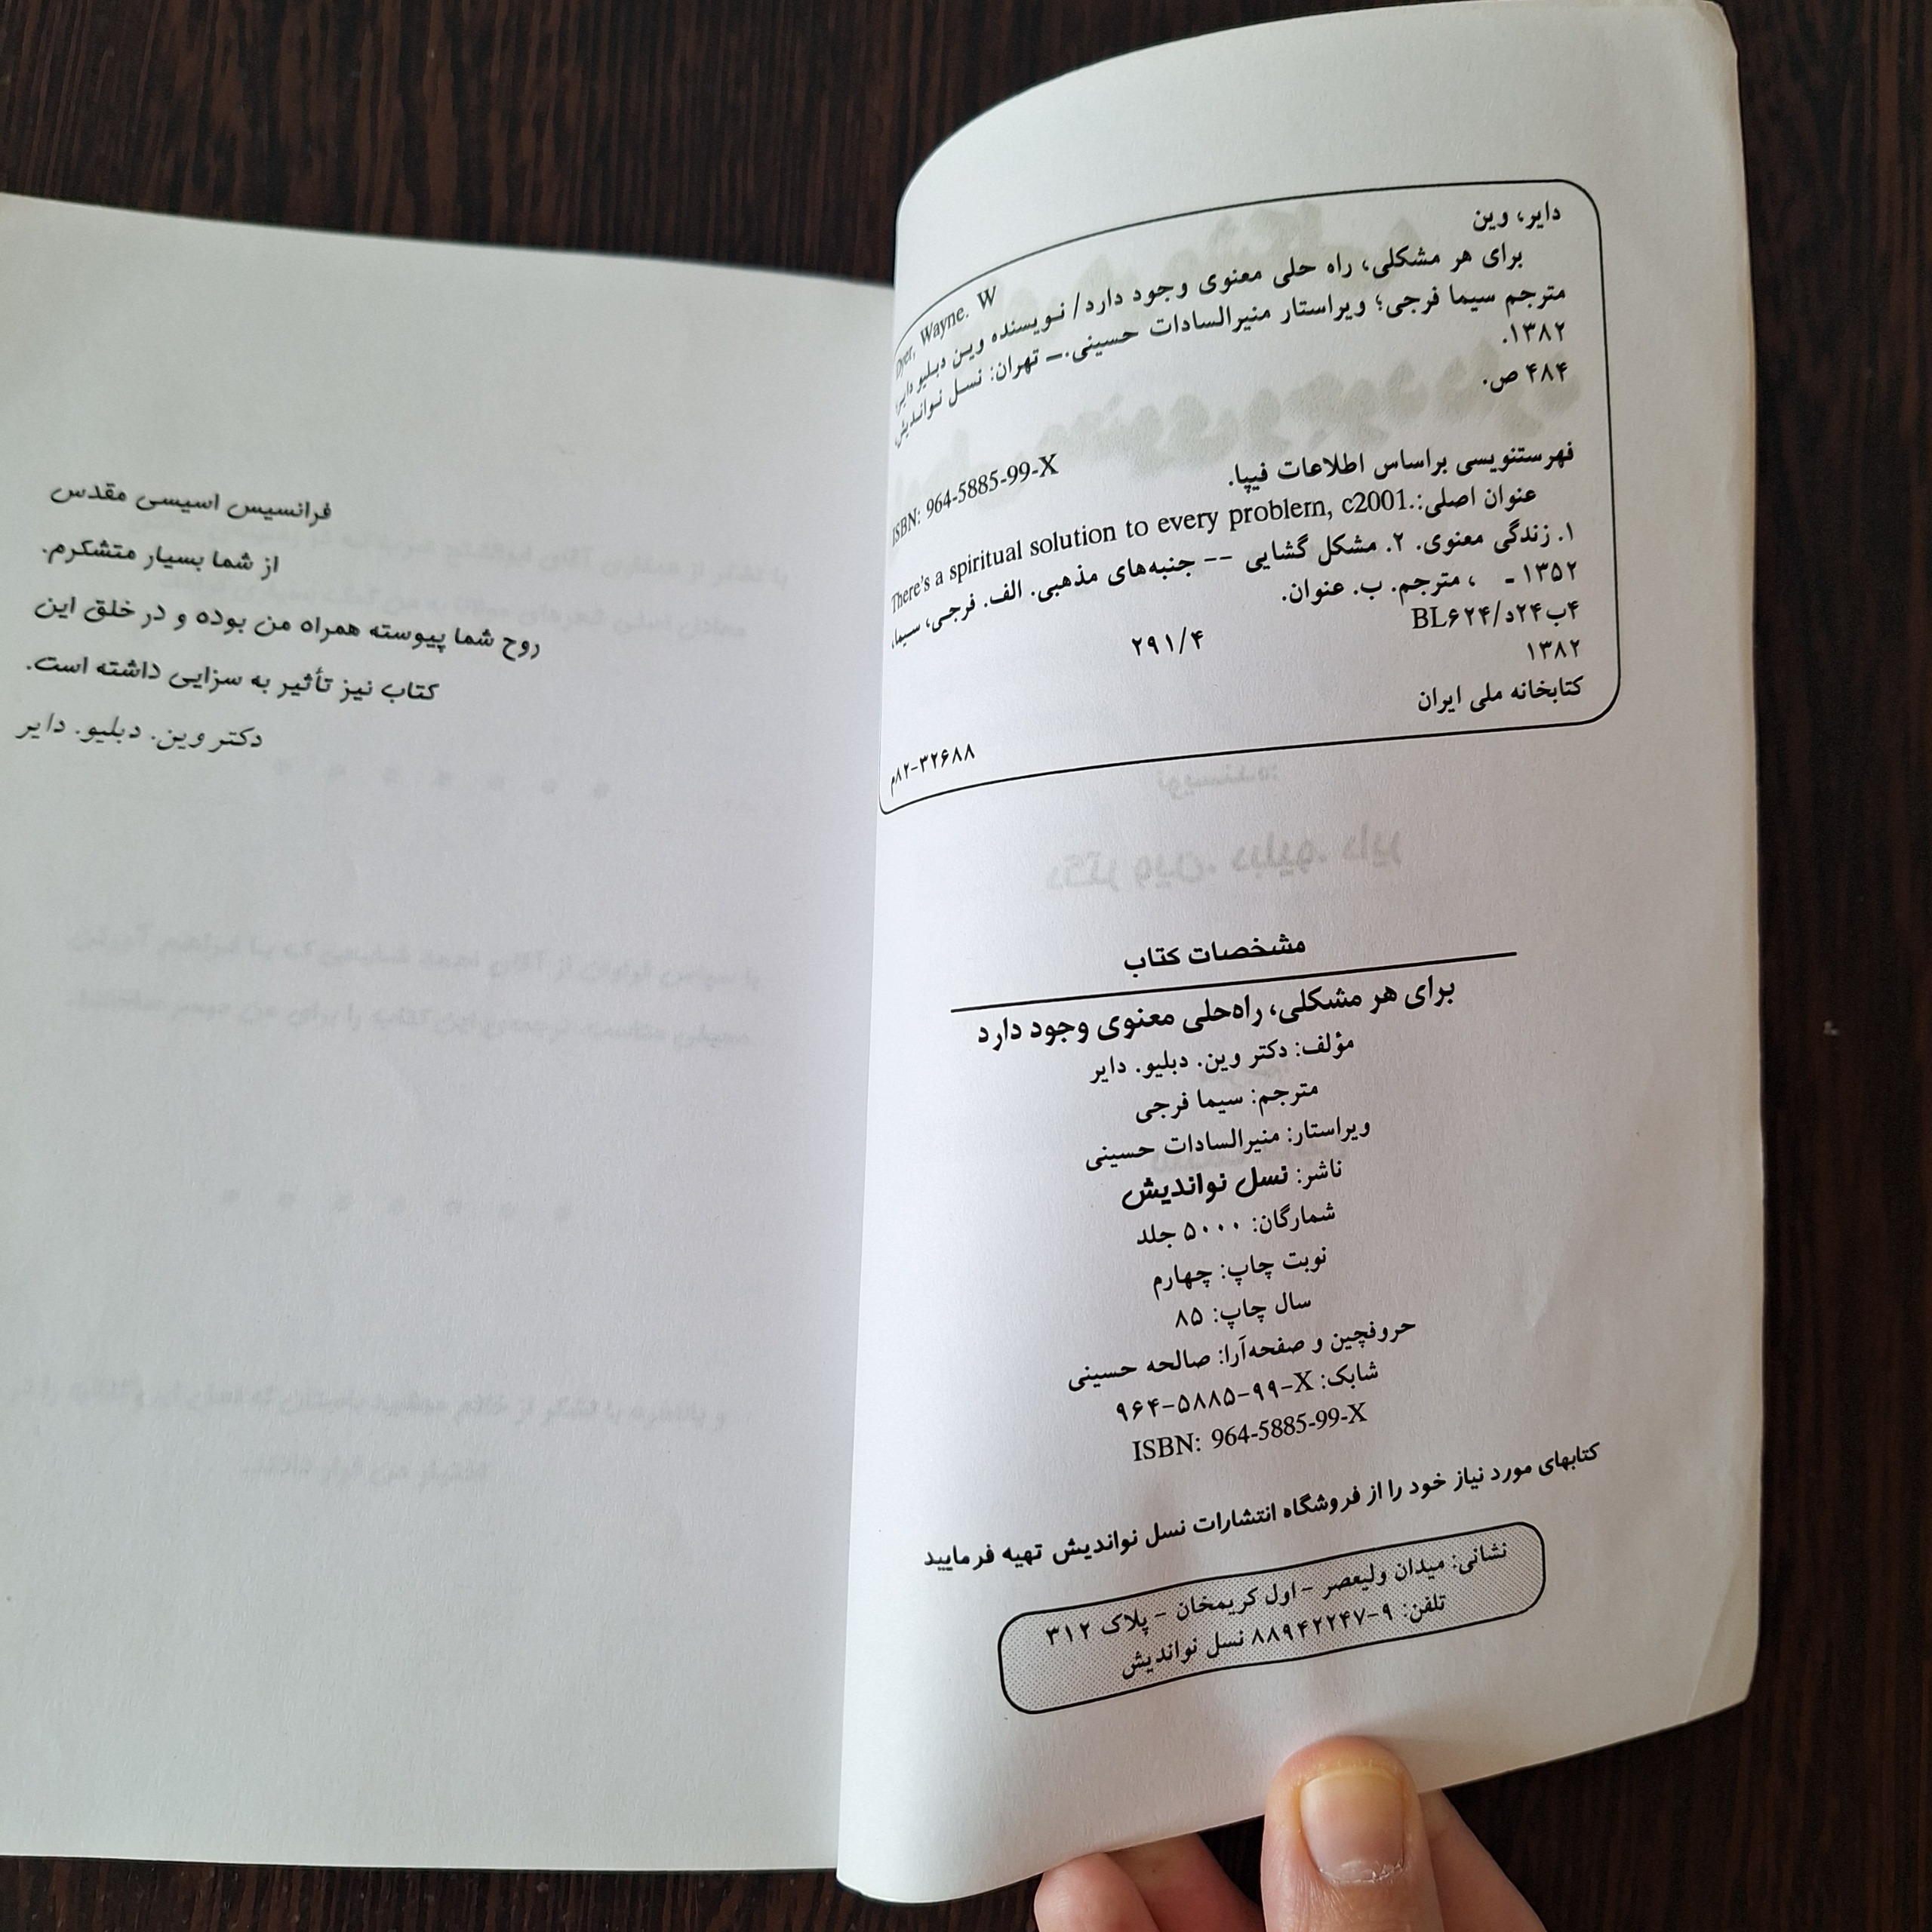 دایر، وین
Dyer, Wayne. W
برای هر مشکلی، راه حلی معنوی وجود دارد/ نویسنده وین دبلیو دایر،
مترجم سیما فرجی؛ ویراستار منیرالسادات حسینی._ تهران: نسل نواندیش،
۱۳۸۲.
۴۸۴ ص.
ISBN: 964-5885-99-X
فهرستنویسی براساس اطلاعات فیپا.
عنوان اصلی:.There's a spiritual solution to every problem, c2001
۱. زندگی معنوی. ۲. مشکل گشایی -- جنبه‌های مذهبی. الف. فرجی، سیما،
۱۳۵۲ـ ، مترجم. ب. عنوان.
۴ب۲۴د/BL۶۲۴
۲۹۱/۴
۱۳۸۲
کتابخانه ملی ایران
۸۲-۳۲۶۸۸م
مشخصات کتاب
برای هر مشکلی، راه‌حلی معنوی وجود دارد
مؤلف: دکتر وین. دبلیو. دایر
مترجم: سیما فرجی
ویراستار: منیرالسادات حسینی
ناشر: نسل نواندیش
شمارگان: ۵۰۰۰ جلد
نوبت چاپ: چهارم
سال چاپ: ۸۵
حروفچین و صفحه‌آرا: صالحه حسینی
شابک: X-۹۹-۵۸۸۵-۹۶۴
ISBN: 964-5885-99-X
کتابهای مورد نیاز خود را از فروشگاه انتشارات نسل نواندیش تهیه فرمایید
نشانی: میدان ولیعصر - اول کریمخان - پلاک ۳۱۲
تلفن: ۹-۸۸۹۴۲۲۴۷ نسل نواندیش
فرانسیس اسیسی مقدس
از شما بسیار متشکرم.
روح شما پیوسته همراه من بوده و در خلق این
کتاب نیز تأثیر به سزایی داشته است.
دکتر وین. دبلیو. دایر